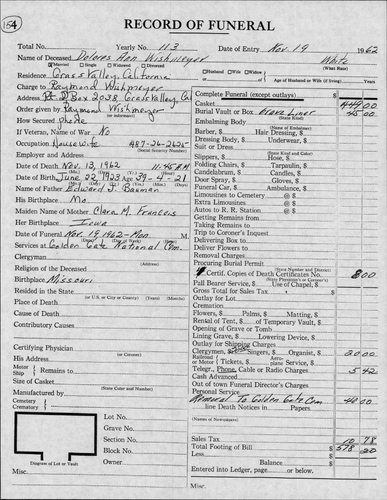 154
RECORD OF FUNERAL
Total No. Yearly No. 113 Date of Entry Nov. 19 1962
Name of Deceased Dolores Ann Wishmeyer White
Married Single Widowed Divorced (What Race)
Residence Grass Valley, California Husband Wife Widow or
Charge to Raymond Wishmeyer Age of Husband or Wife (if living) Years
Address Rt. 2 Box 2038 Grass Valley, Cal
Order given by Raymond Wishmeyer
(or Informant)
How Secured Phone
If Veteran, of War No
Occupation Housewife 487-26-2625
(Social Security Number)
Employer and Address
Date of Death Nov. 13, 1962 11:45 P.M.
Date of Birth June 22, 1923 Age 39-4-21
Name of Father Edward J. Bauman
His Birthplace Mo.
Maiden Name of Mother Clara M. Francis
Her Birthplace Iowa
Date of Funeral Nov 19, 1962-Mon M.
Services at Golden Gate National Cem.
Clergyman
Religion of the Deceased
Birthplace Missouri
Resided in the State
(or U.S. or City or County) (Years) (Months)
Place of Death
Cause of Death
Contributory Causes
Certifying Physician
(or Coroner)
His Address
Motor
Ship Remains to
Size of Casket
(State Color and Number)
Manufactured by
Cemetery
Crematory
Lot No.
Grave No.
Section No.
Block No.
Owner
Diagram of Lot or Vault
Misc.
Complete Funeral (except outlays) $
Casket 449 00
Burial Vault or Box Liner 45 00
(State Kind)
Embalming Body
(Name of Embalmer)
Barber, $ Hair Dressing, $
Dressing Body, $ Underwear, $
Suit or Dress
(State Kind and Color)
Slippers, $ Hose, $
Folding Chairs, $ Tarpaulin, $
Candelabrum, $ Candles, $
Door Spray, $ Gloves, $
Funeral Car, $ Ambulance, $
Limousines to Cemetery @ $
Extra Limousines @ $
Autos to R. R. Station @ $
Getting Remains from
Taking Remains to
Trip to Coroner's Inquest
Delivering Box to
Deliver Flowers to
Removal Charges
Procuring Burial Permit
(State Number and District)
4 Certif. Copies of Death Certificates No. 8 00
(State Physician's or Coroner's)
Pall Bearer Service, $ Use of Chapel, $
Gross Total for Sales Tax $
Outlay for Lot
Cremation
Flowers, $ Palms, $ Matting, $
Rental of Tent, $ of Temporary Vault, $
Opening of Grave or Tomb
Lining Grave, $ Lowering Device, $
Outlay for Shipping Charges
Clergymen, $ Singers, $ Organist, $ 20 00
Railroad
or Motor Tickets, $ Aero-
plane Service, $
Telegr., Phone, Cable or Radio Charges 5 42
Cash Advanced
Out of town Funeral Director's Charges
Personal Service
Removal To Golden Gate Cem 40 00
line Death Notices in Papers.
(Names of Newspapers)
Sales Tax 10 78
Total Footing of Bill $ 578 20
Less
Balance $
Entered into Ledger, page or below.
Misc.